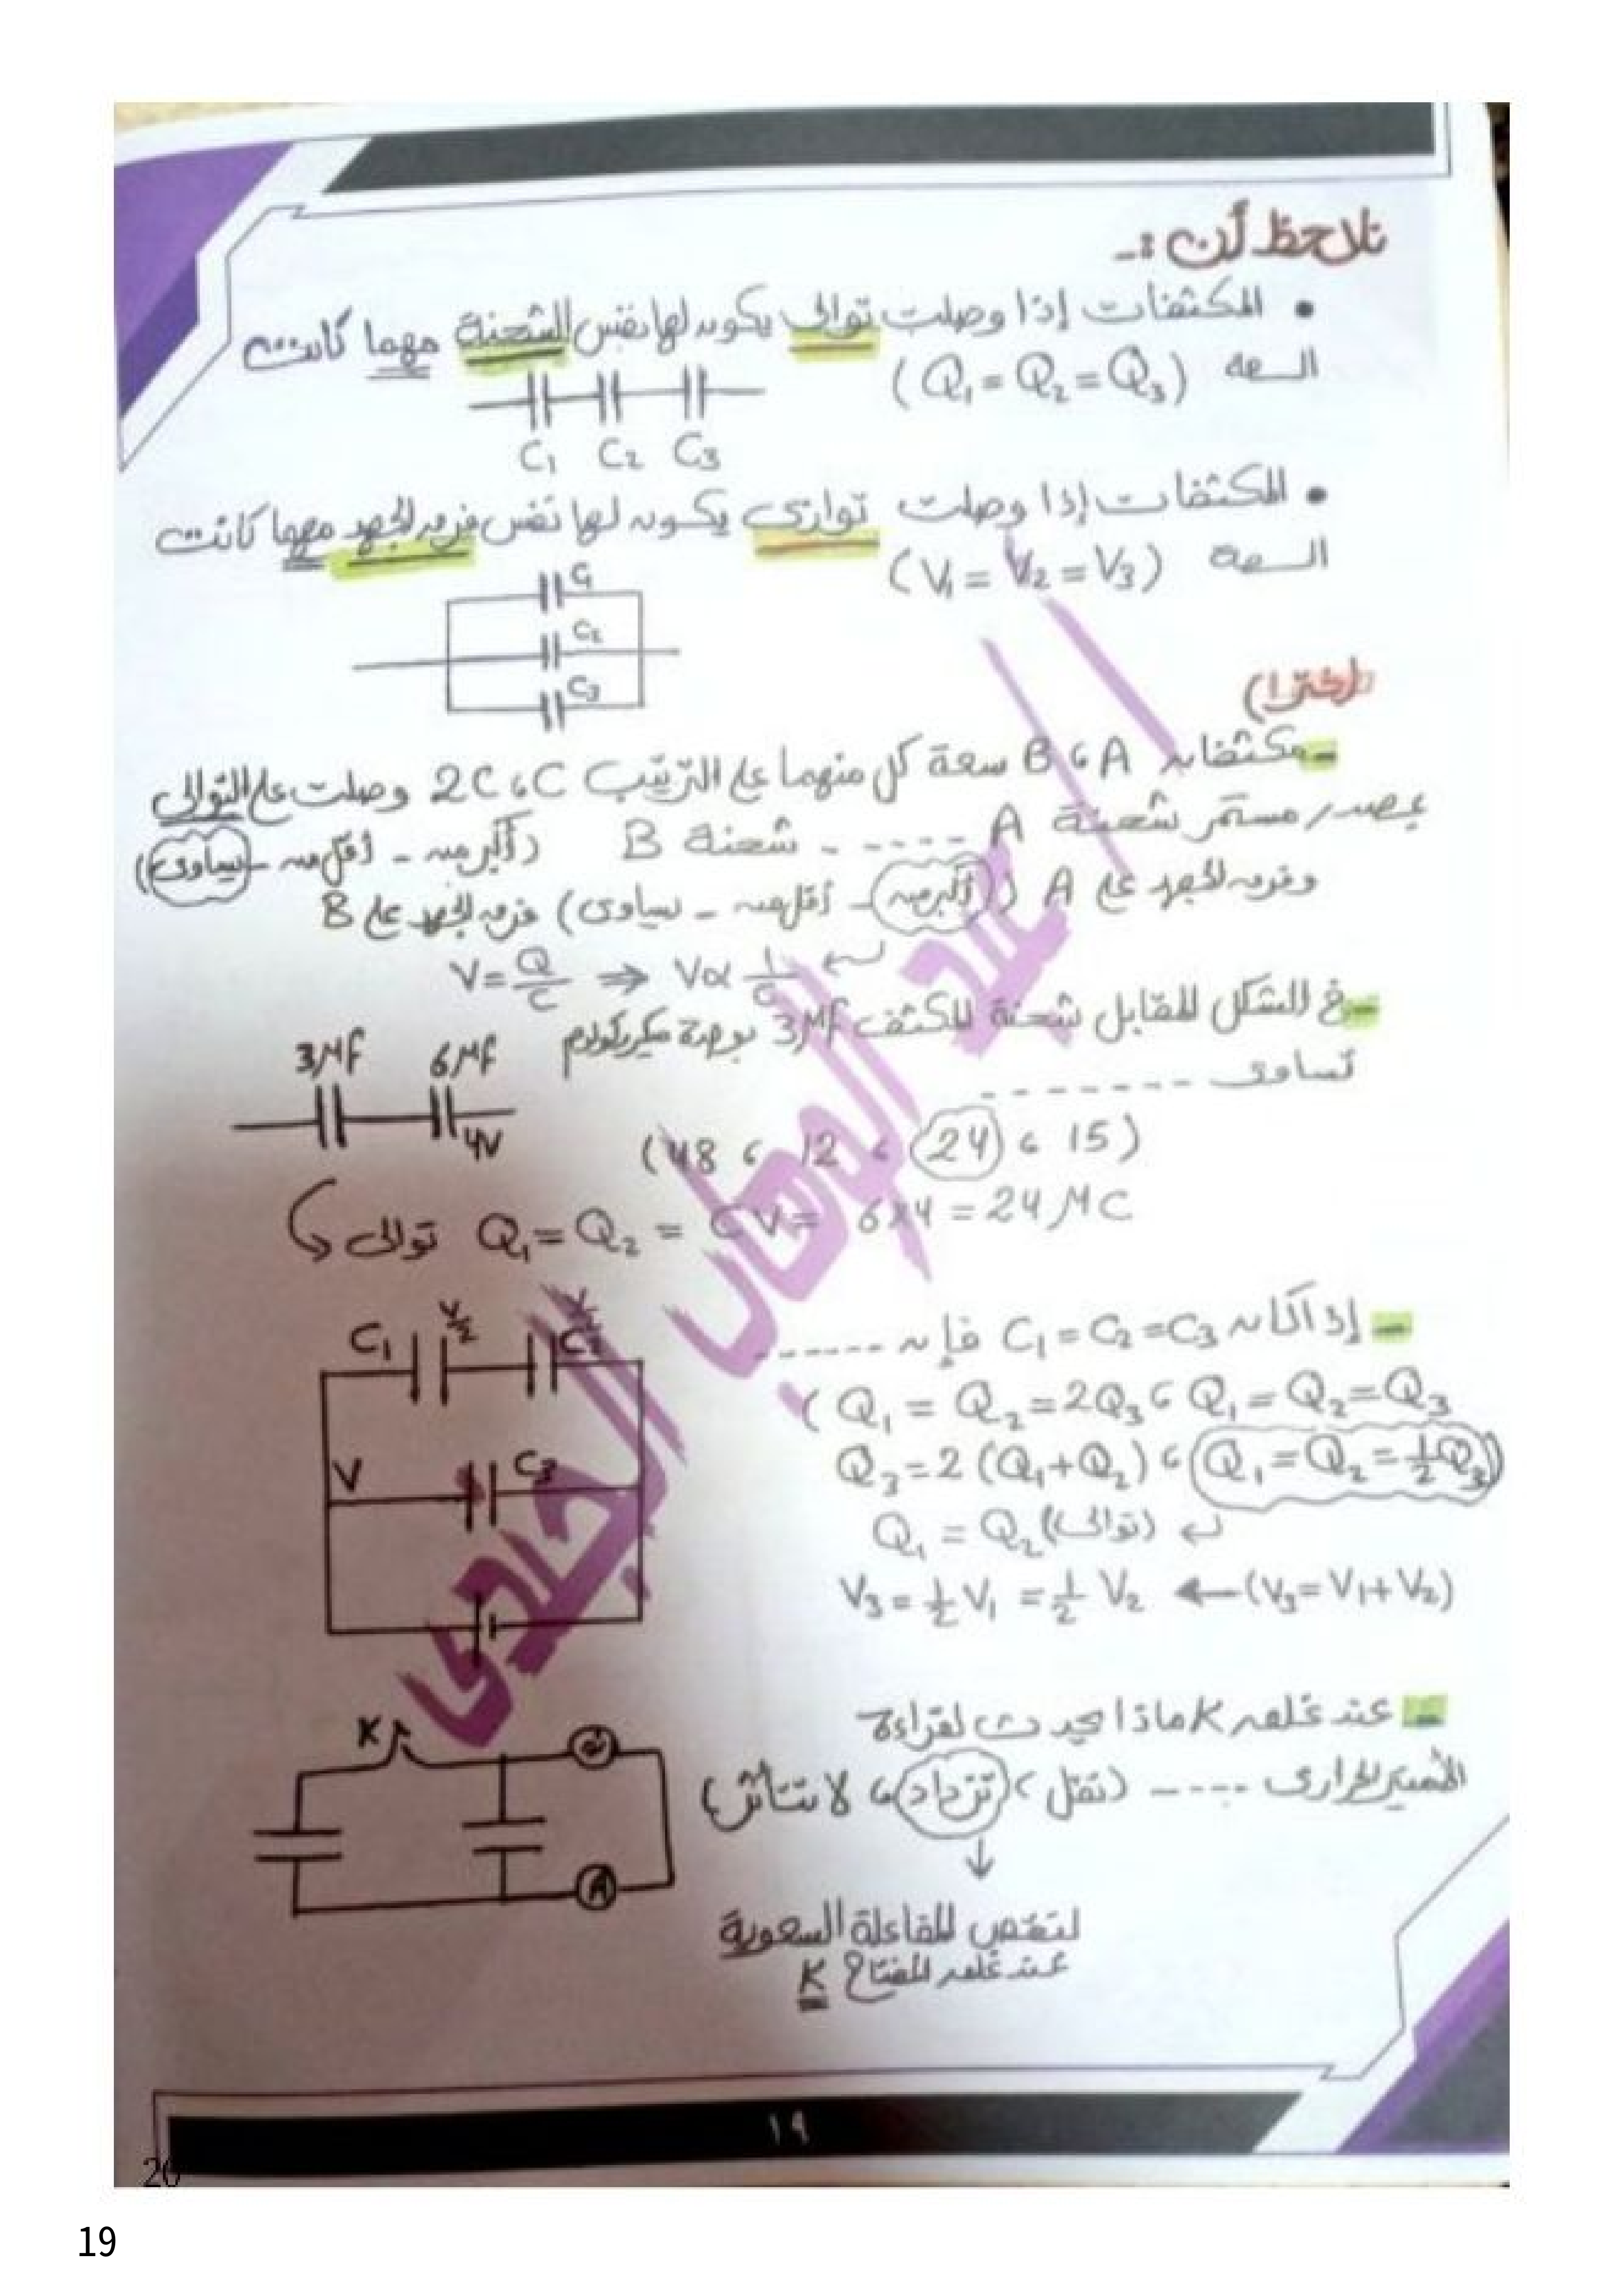 نلاحظ أن :-
• المكثفات إذا وصلت توالى يكون لها نفس الشحنة مهما كانت
السعة (Q₁ = Q₂ = Q₃)
C₁ C₂ C₃
• المكثفات إذا وصلت توازى يكون لها نفس فرق الجهد مهما كانت
السعة (V₁ = V₂ = V₃)
C₁
C₂
C₃
اختر ا)
- مكثفان A ، B سعة كل منهما على الترتيب C ، 2C وصلت على التوالى
بمصدر مستمر شحنة A ----- شحنة B (أكبر من - أقل من - يساوى)
وفرق الجهد على A (أكبر من - أقل من - يساوى) فرق الجهد على B
V = Q/C ⇒ V α 1/C
- فى الشكل المقابل شحنة المكثف 3μf بوحدة ميكروكولوم
تساوى -------
3μf 6μf
4V
(48 ، 12 ، 24 ، 15)
توالى Q₁ = Q₂ = CV = 6x4 = 24 μC
- إذا كان C₁ = C₂ = C₃ فإن ------
C₁ V/2 V/2 C₂
(Q₁ = Q₂ = 2Q₃ ، Q₁ = Q₂ = Q₃
Q₃ = 2 (Q₁+Q₂) ، Q₁ = Q₂ = ½Q₃)
V C₃
Q₁ = Q₂ (توالى)
V₃ = ½ V₁ = ½ V₂ ← (V₃ = V₁ + V₂)
- عند غلق K ماذا يحدث لقراءة
الأميتر الحرارى ---- (تقل ، تزداد ، لا تتأثر)
K
A
لنقص المفاعلة السعوية
عند غلق المفتاح K
عبد الوهاب الجندى
١٩
20
19